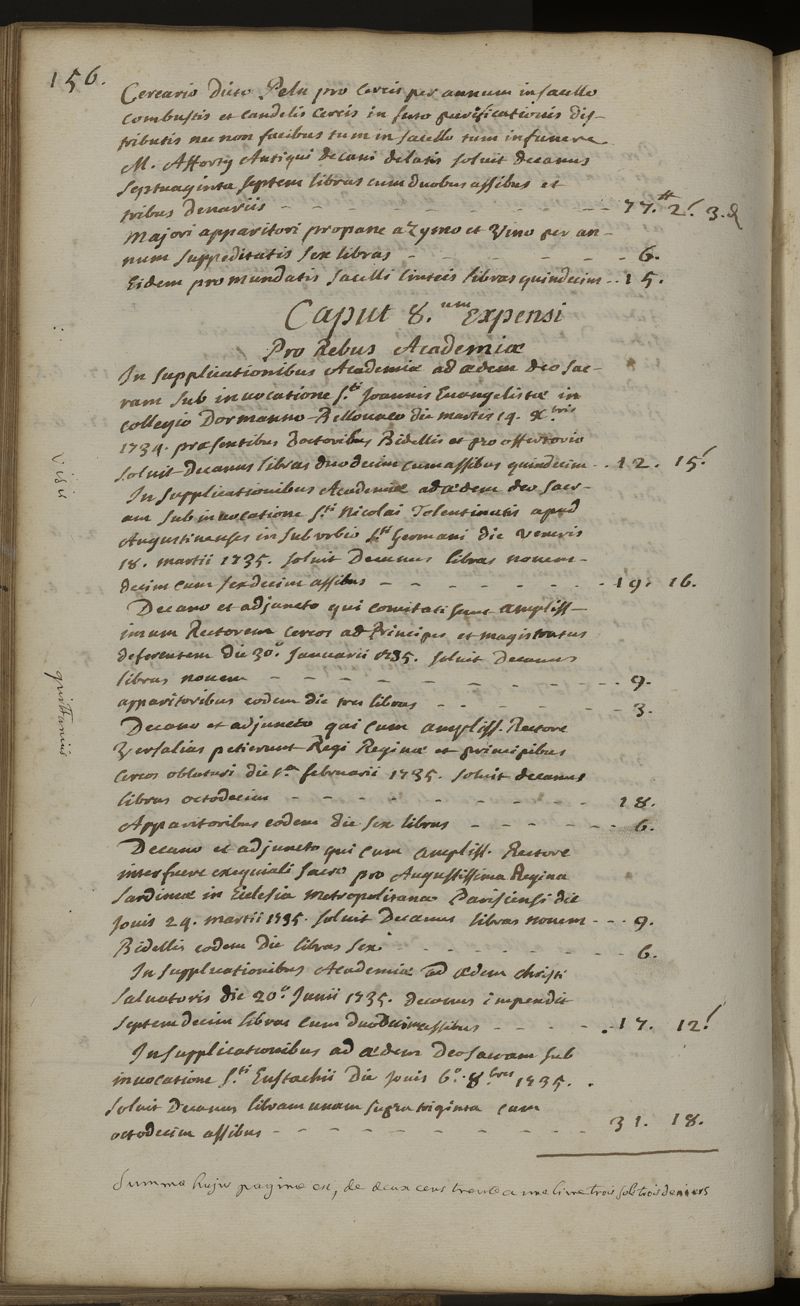 156.
Cereario dicto Pelu pro cereis per annum in sacello
combustis et candelis cereis in festo purificationis dis-
tributis nec non facibus tum in sacello tum in funere
M. Afforty Antiqui decani delatis soluit decanus
septuaginta septem libras cum duobus assibus et
tribus denariis - - - - - - - - 77.# 2.s 3.d
Majori apparitori pro pane azymo et vino per an-
num suppeditatis sex libras - - - - - - 6.
Eidem pro mundatis sacelli linteis libras quindecim - - 15.
Caput 8.um Expensi
Pro Rebus Academiæ
In supplicationibus Academiæ ad ædem deo sac-
ram sub invocatione s.ti Joannis Evangelistæ in
collegio Dormanno-Bellovaco die martis 14. X.bris
1734. præsentibus Doctoribus Bidellis et pro offertorio
soluit Decanus libras duodecim cum assibus quindecim - - 12. 15.s
In supplicationibus Academiæ ad ædem deo sacr-
am sub invocatione s.ti Nicolai Tolentinatis apud
Augustinenses in suburbio s.ti Germani die veneris
18. martii 1735. soluit Decanus libras novem-
decim cum sexdecim assibus - - - - - - 19. 16.
Decano et adjuncto qui comitati sunt ampliss-
imum Rectorem cereos ad Principes et magistratus
deferentem die 30.a Januarii 1735. soluit Decanus
libras novem - - - - - - - - - - 9.
apparitoribus eodem die tres libras - - - - - 3.
Decano et adjuncto qui cum ampliss. Rectore
Versalias petierunt Regi Reginæ et principibus
cereos oblaturi die 1.a februarii 1735. soluit decanus
libras octodecim - - - - - - - - - 18.
Apparitoribus eodem die sex libras - - - - - 6.
Decano et adjuncto qui cum ampliss. Rectore
interfuere exequiali sacro pro Augustissima Regina
Sardiniæ in Ecclesia metropolitana Parisiensi die
Jovis 24. martii 1735. soluit Decanus libras novem - - - 9.
Bidellis eodem die libras sex - - - - - - - 6.
In supplicationibus Academiæ ad ædem christi
salvatoris die 20.a Junii 1735. decanus impendit
septemdecim libras cum duodecim assibus - - - - - 17. 12.s
In supplicationibus ad ædem Deo sacram sub
invocatione s.ti Eustachii Die Jovis 6.a 8.bris 1735.
soluit Decanus libram unam supra triginta cum
octodecim assibus - - - - - - - - 31. 18.
Summa hujus paginæ est, de deux cens trente une livre trois sols trois deniers
Visis
quittanciis